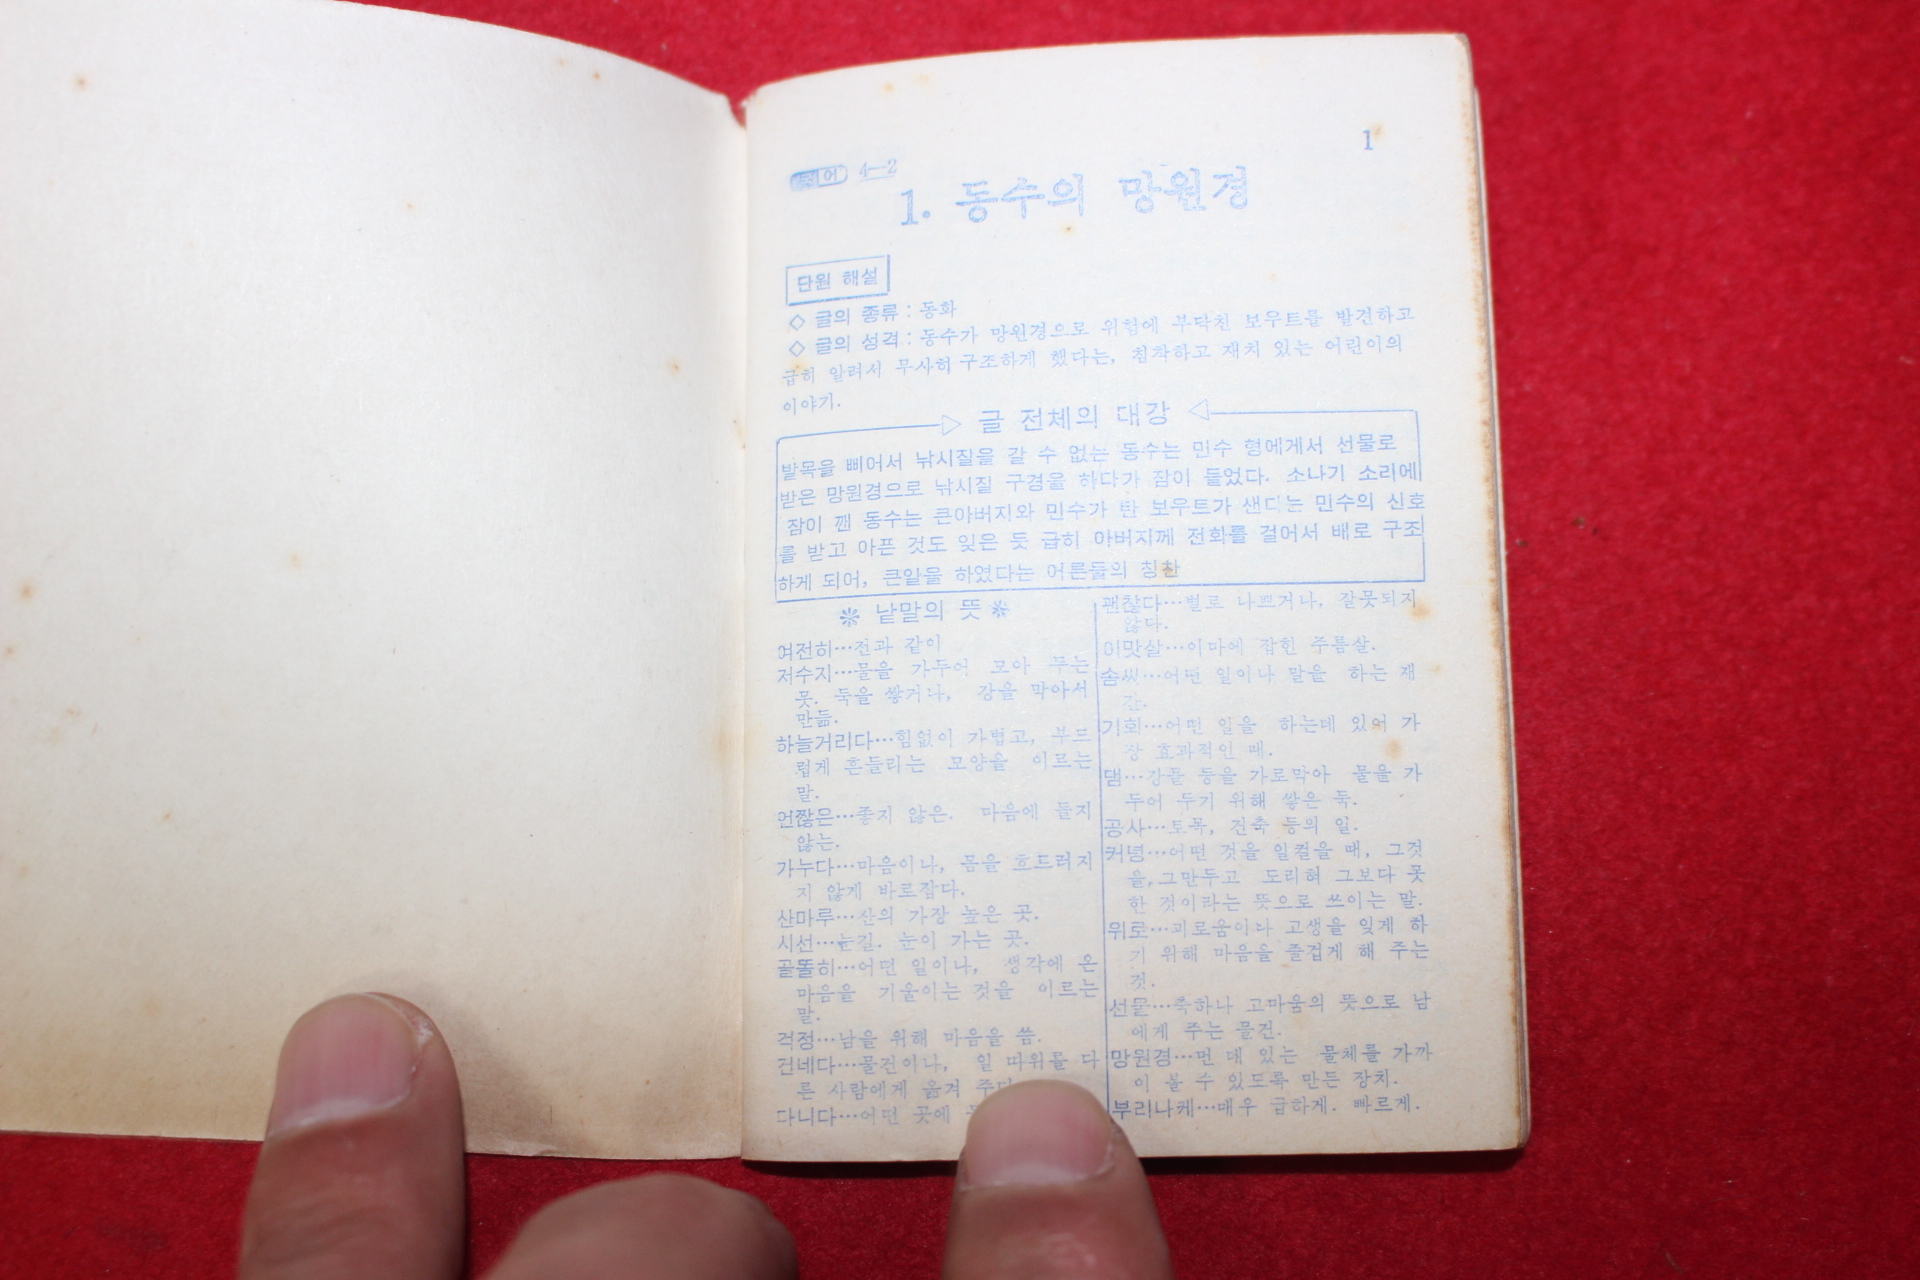 1
국어 4—2
1. 동수의 망원경
단원 해설
◇ 글의 종류 : 동화
◇ 글의 성격 : 동수가 망원경으로 위험에 부닥친 보우트를 발견하고
급히 알려서 무사히 구조하게 했다는, 침착하고 재치 있는 어린이의
이야기.
글 전체의 대강
발목을 삐어서 낚시질을 갈 수 없는 동수는 민수 형에게서 선물로
받은 망원경으로 낚시질 구경을 하다가 잠이 들었다. 소나기 소리에
잠이 깬 동수는 큰아버지와 민수가 탄 보우트가 샌다는 민수의 신호
를 받고 아픈 것도 잊은 듯 급히 아버지께 전화를 걸어서 배로 구조
하게 되어, 큰일을 하였다는 어른들의 칭찬
※ 낱말의 뜻 ※
여전히…전과 같이
저수지…물을 가두어 모아 두는
못. 둑을 쌓거나, 강을 막아서
만듦.
하늘거리다…힘없이 가볍고, 부드
럽게 흔들리는 모양을 이르는
말.
언짢은…좋지 않은. 마음에 들지
않는.
가누다…마음이나, 몸을 흐트러지
지 않게 바로잡다.
산마루…산의 가장 높은 곳.
시선…눈길. 눈이 가는 곳.
골똘히…어떤 일이나, 생각에 온
마음을 기울이는 것을 이르는
말.
걱정…남을 위해 마음을 씀.
건네다…물건이나, 일 따위를 다
른 사람에게 옮겨 주다
다니다…어떤 곳에
괜찮다…별로 나쁘거나, 잘못되지
않다.
이맛살…이마에 잡힌 주름살.
솜씨…어떤 일이나 말을 하는 재
간.
기회…어떤 일을 하는데 있어 가
장 효과적인 때.
댐…강들 등을 가로막아 물을 가
두어 두기 위해 쌓은 둑.
공사…토목, 건축 등의 일.
커녕…어떤 것을 일컬을 때, 그것
을,그만두고 도리혀 그보다 못
한 것이라는 뜻으로 쓰이는 말.
위로…괴로움이나 고생을 잊게 하
기 위해 마음을 즐겁게 해 주는
것.
선물…축하나 고마움의 뜻으로 남
에게 주는 물건.
망원경…먼 데 있는 물체를 가까
이 볼 수 있도록 만든 장치.
부리나케…매우 급하게. 빠르게.